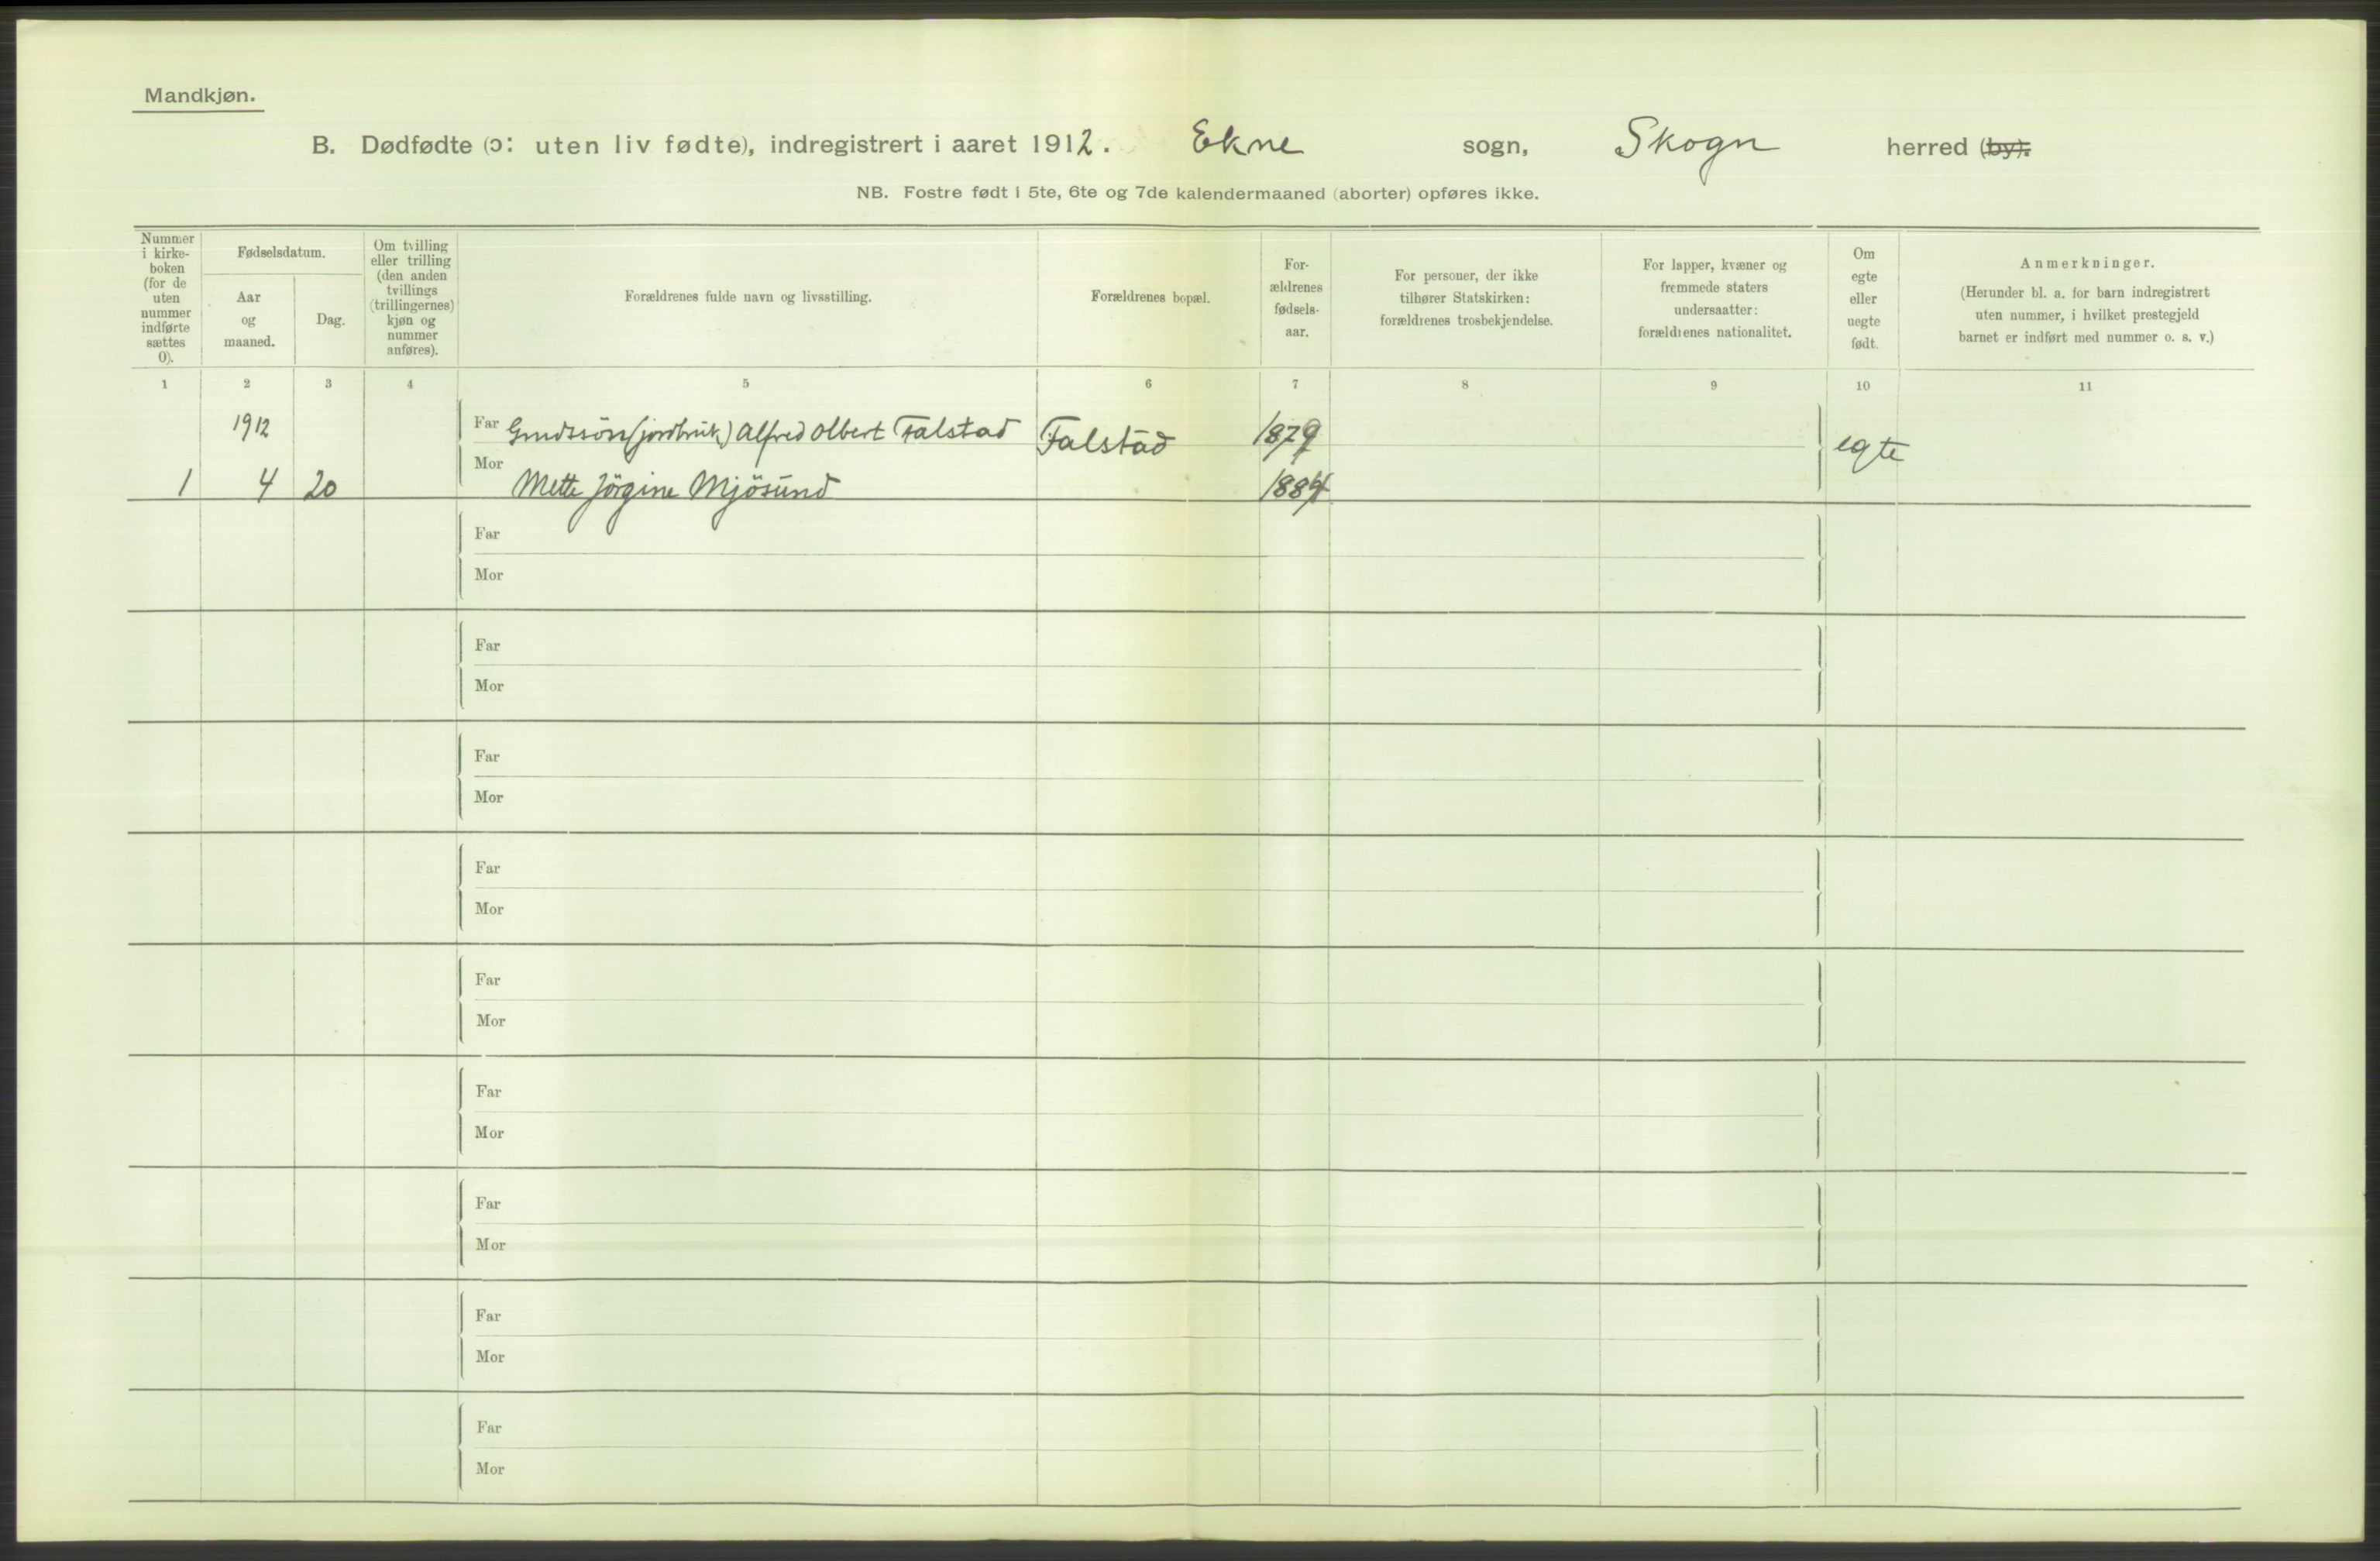 Mandkjøn.
B. Dødfødte (ɔ: uten liv fødte), indregistrert i aaret 1912. Ekne sogn, Skogn herred (by).
NB. Fostre født i 5te, 6te og 7de kalendermaaned (aborter) opføres ikke.
Nummer i kirke- boken (for de uten nummer indførte sættes 0).
Fødselsdatum.
Aar og maaned.
Dag.
Om tvilling eller trilling (den anden tvillings (trillingernes) kjøn og nummer anføres).
Forældrenes fulde navn og livsstilling.
Forældrenes bopæl.
For- ældrenes fødsels- aar.
For personer, der ikke tilhører Statskirken: forældrenes trosbekjendelse.
For lapper, kvæner og fremmede staters undersaatter: forældrenes nationalitet.
Om egte eller uegte født.
Anmerkninger. (Herunder bl. a. for barn indregistrert uten nummer, i hvilket prestegjeld barnet er indført med nummer o. s. v.)
1 2 3 4 5 6 7 8 9 10 11
1912 Far (jordbruk) Alfred Olbert Falstad Falstad 1879 egte
1 4 20 Mor Mette Jörgine Mjösund 1884
Far
Mor
Far
Mor
Far
Mor
Far
Mor
Far
Mor
Far
Mor
Far
Mor
Far
Mor
Far
Mor